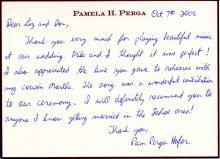 PAMELA H. PERGA
Oct. 7th 2005
Dear Liz and Don,
Thank you very much for playing beautiful music
at our wedding. Mike and I thought it was perfect!
I also appreciated the time you gave to rehearse with
my cousin Martha. The song was a wonderful contribution
to our ceremony. I will definitely recommend you to
anyone I know getting married in the Tahoe area!
Thank you,
Pam Perga Hofer